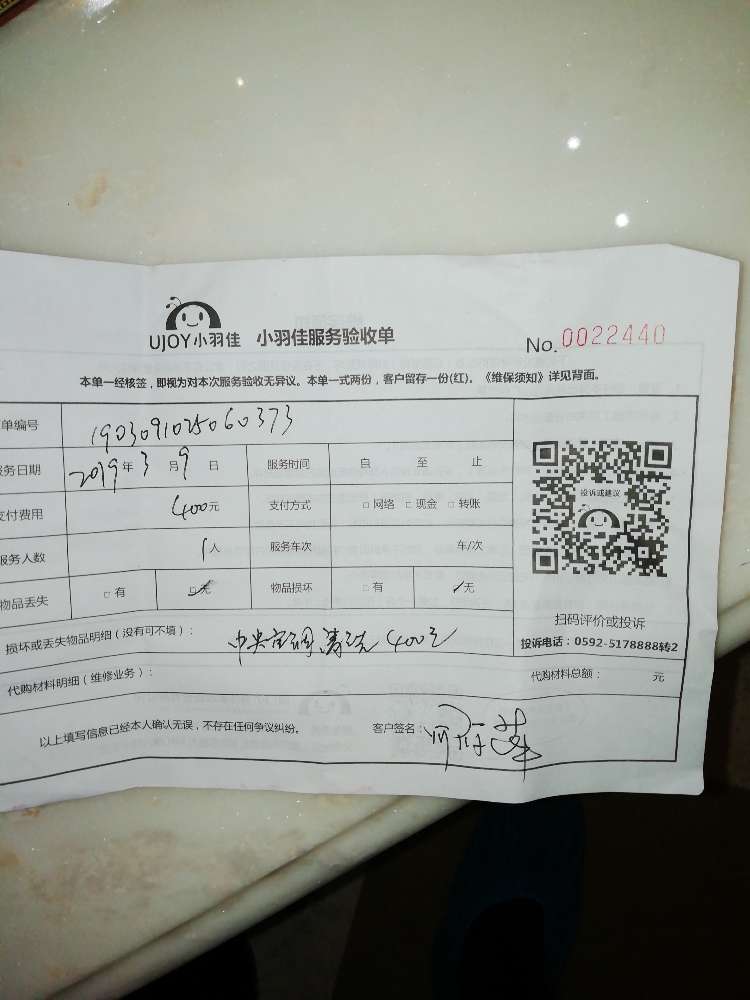 UJOY小羽佳 小羽佳服务验收单 No. 0022440
本单一经核签，即视为对本次服务验收无异议。本单一式两份，客户留存一份(红)。《维保须知》详见背面。
单编号 190309102506037​3
务日期 2019年3月9日 服务时间 自 至 止
支付费用 400元 支付方式 □网络 □现金 □转账
服务人数 1人 服务车次 车/次
物品丢失 □有 □无 物品损坏 □有 ✓无
投诉或建议
扫码评价或投诉
投诉电话：0592-5178888转2
损坏或丢失物品明细（没有可不填）： 中央空调清洗400元
代购材料明细（维修业务）： 代购材料总额： 元
以上填写信息已经本人确认无误，不存在任何争议纠纷。 客户签名：